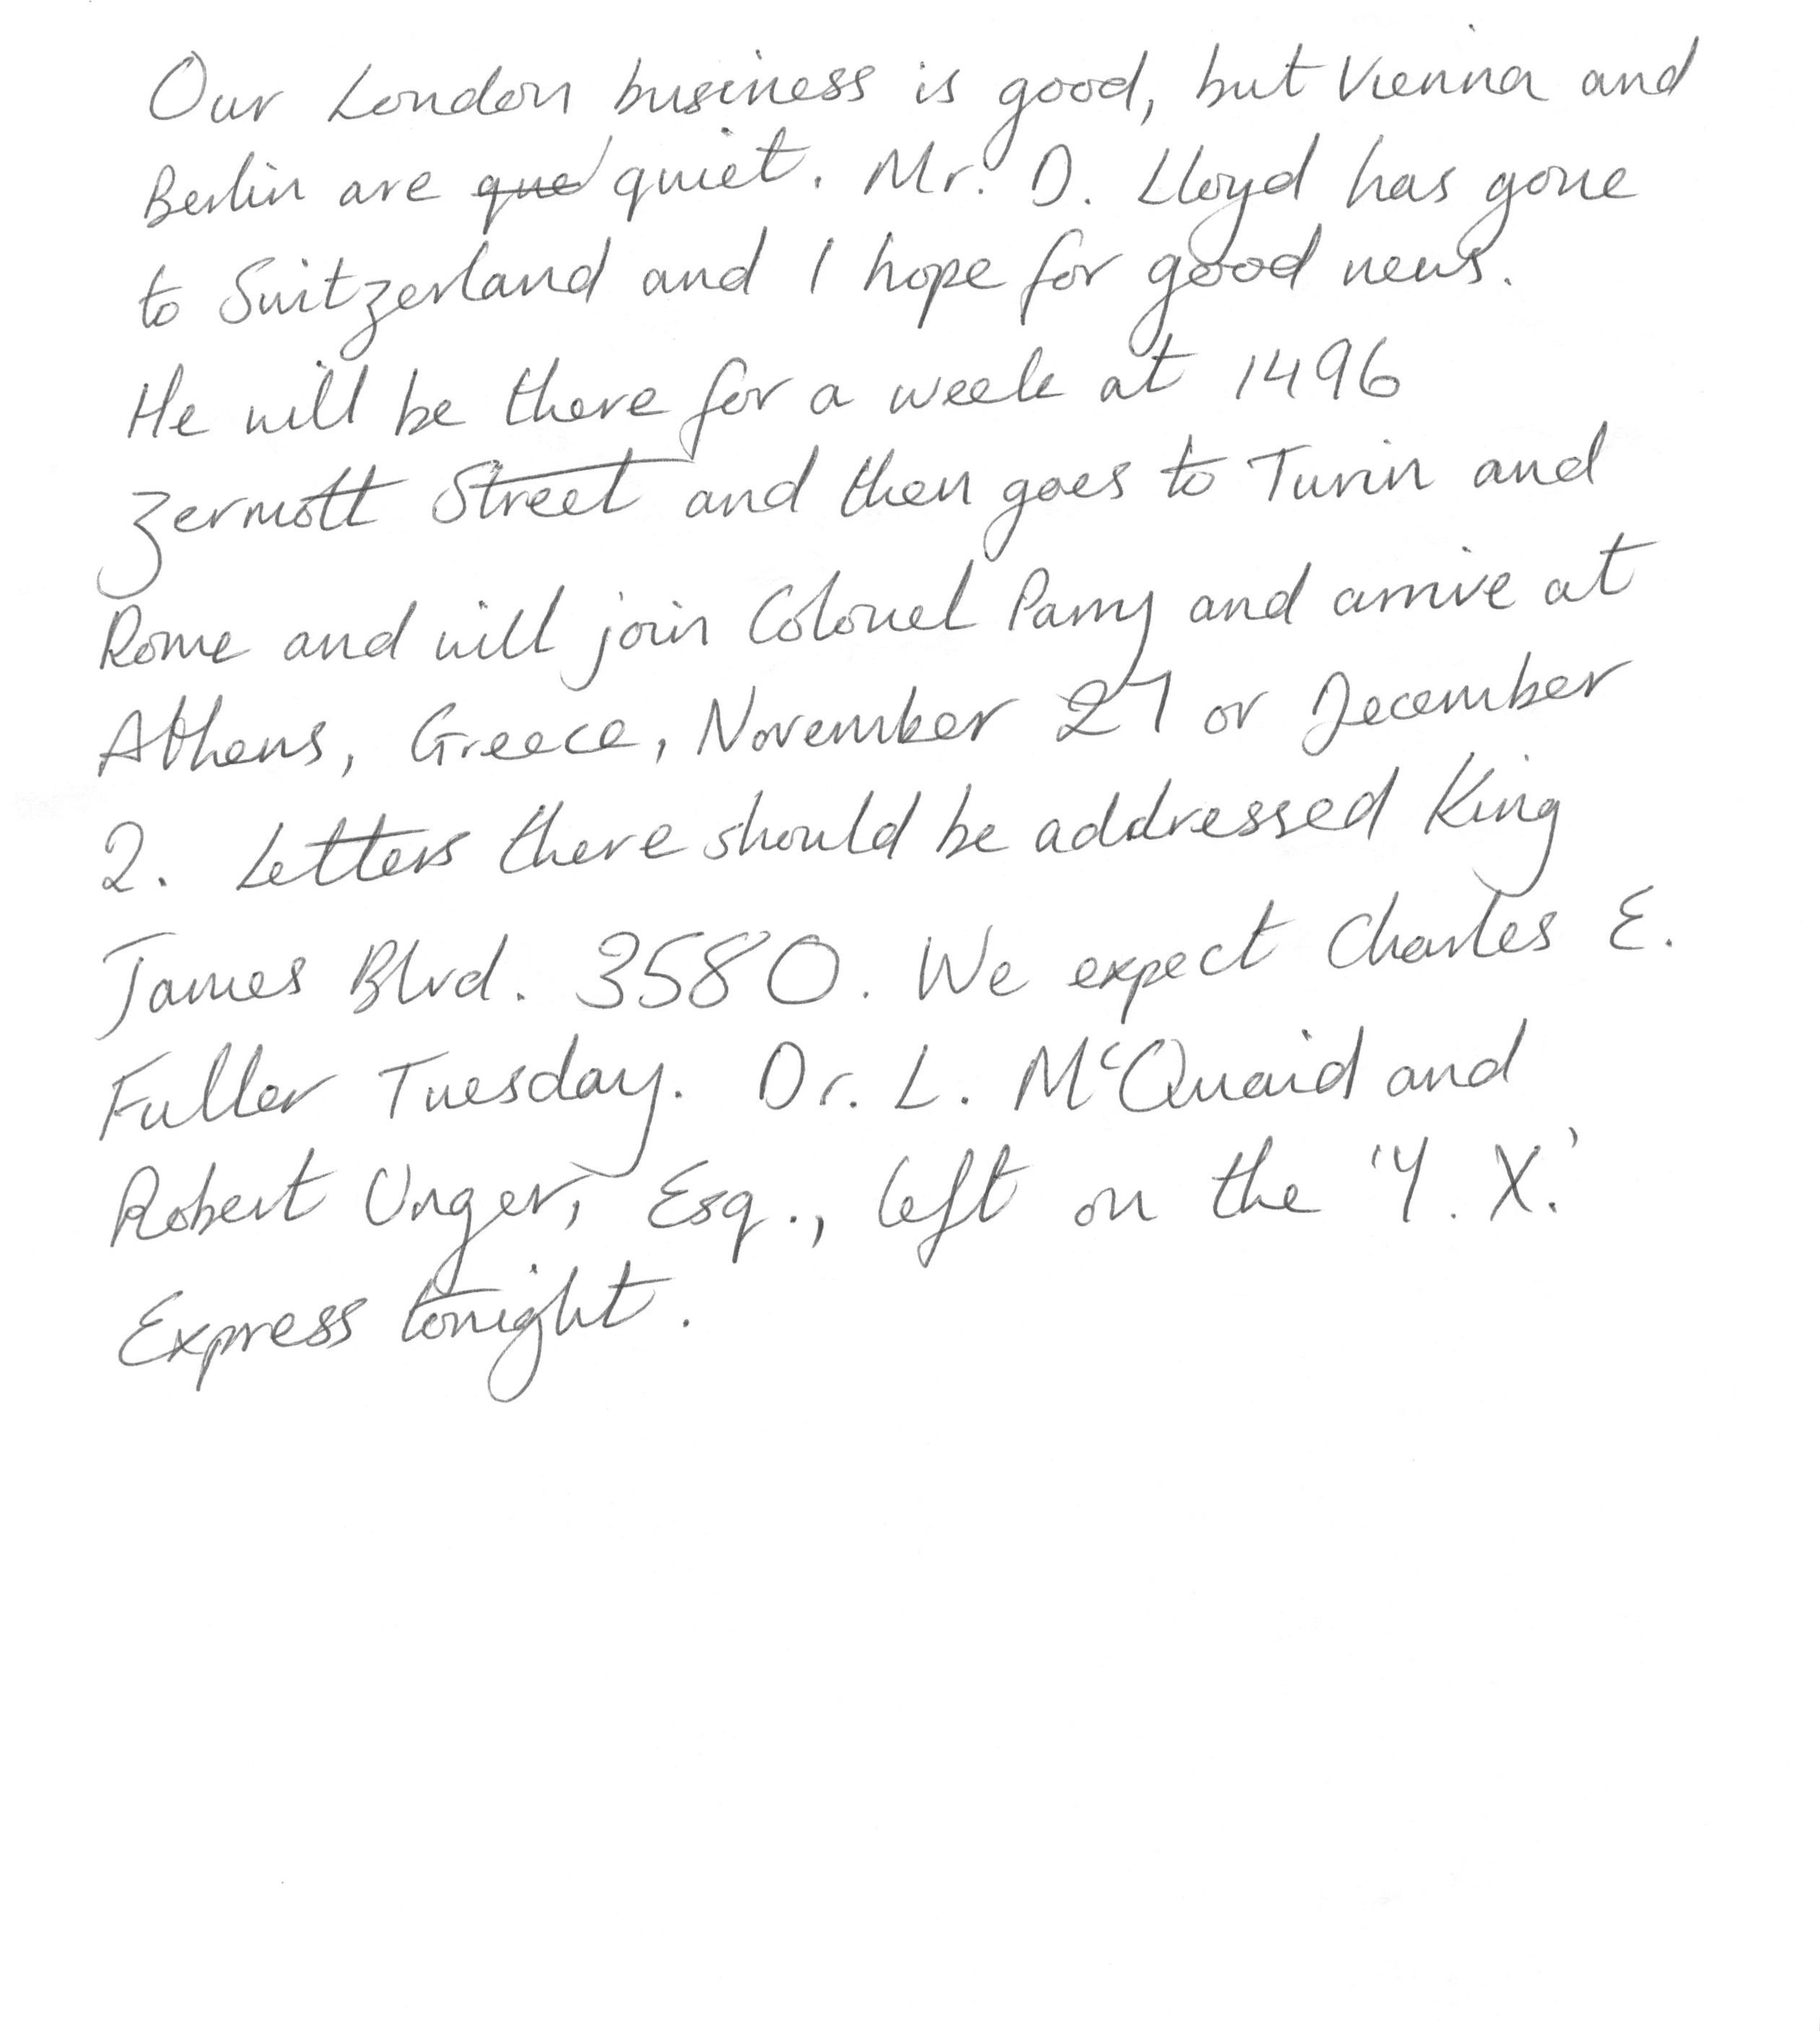 Our London business is good, but Vienna and
Berlin are que quiet. Mr. D. Lloyd has gone
to Switzerland and I hope for good news.
He will be there for a week at 1496
Zermott Street and then goes to Turin and
Rome and will join Colonel Parry and arrive at
Athens, Greece, November 27 or December
2. Letters there should be addressed King
James Blvd. 3580. We expect Charles E.
Fuller Tuesday. Dr. L. McQuaid and
Robert Unger, Esq., left on the 'Y. X.'
Express tonight.